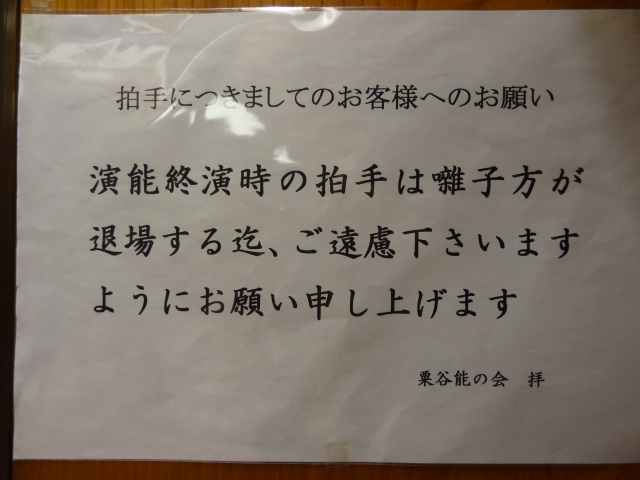 拍手につきましてのお客様へのお願い
演能終演時の拍手は囃子方が
退場する迄、ご遠慮下さいます
ようにお願い申し上げます
粟谷能の会　拝